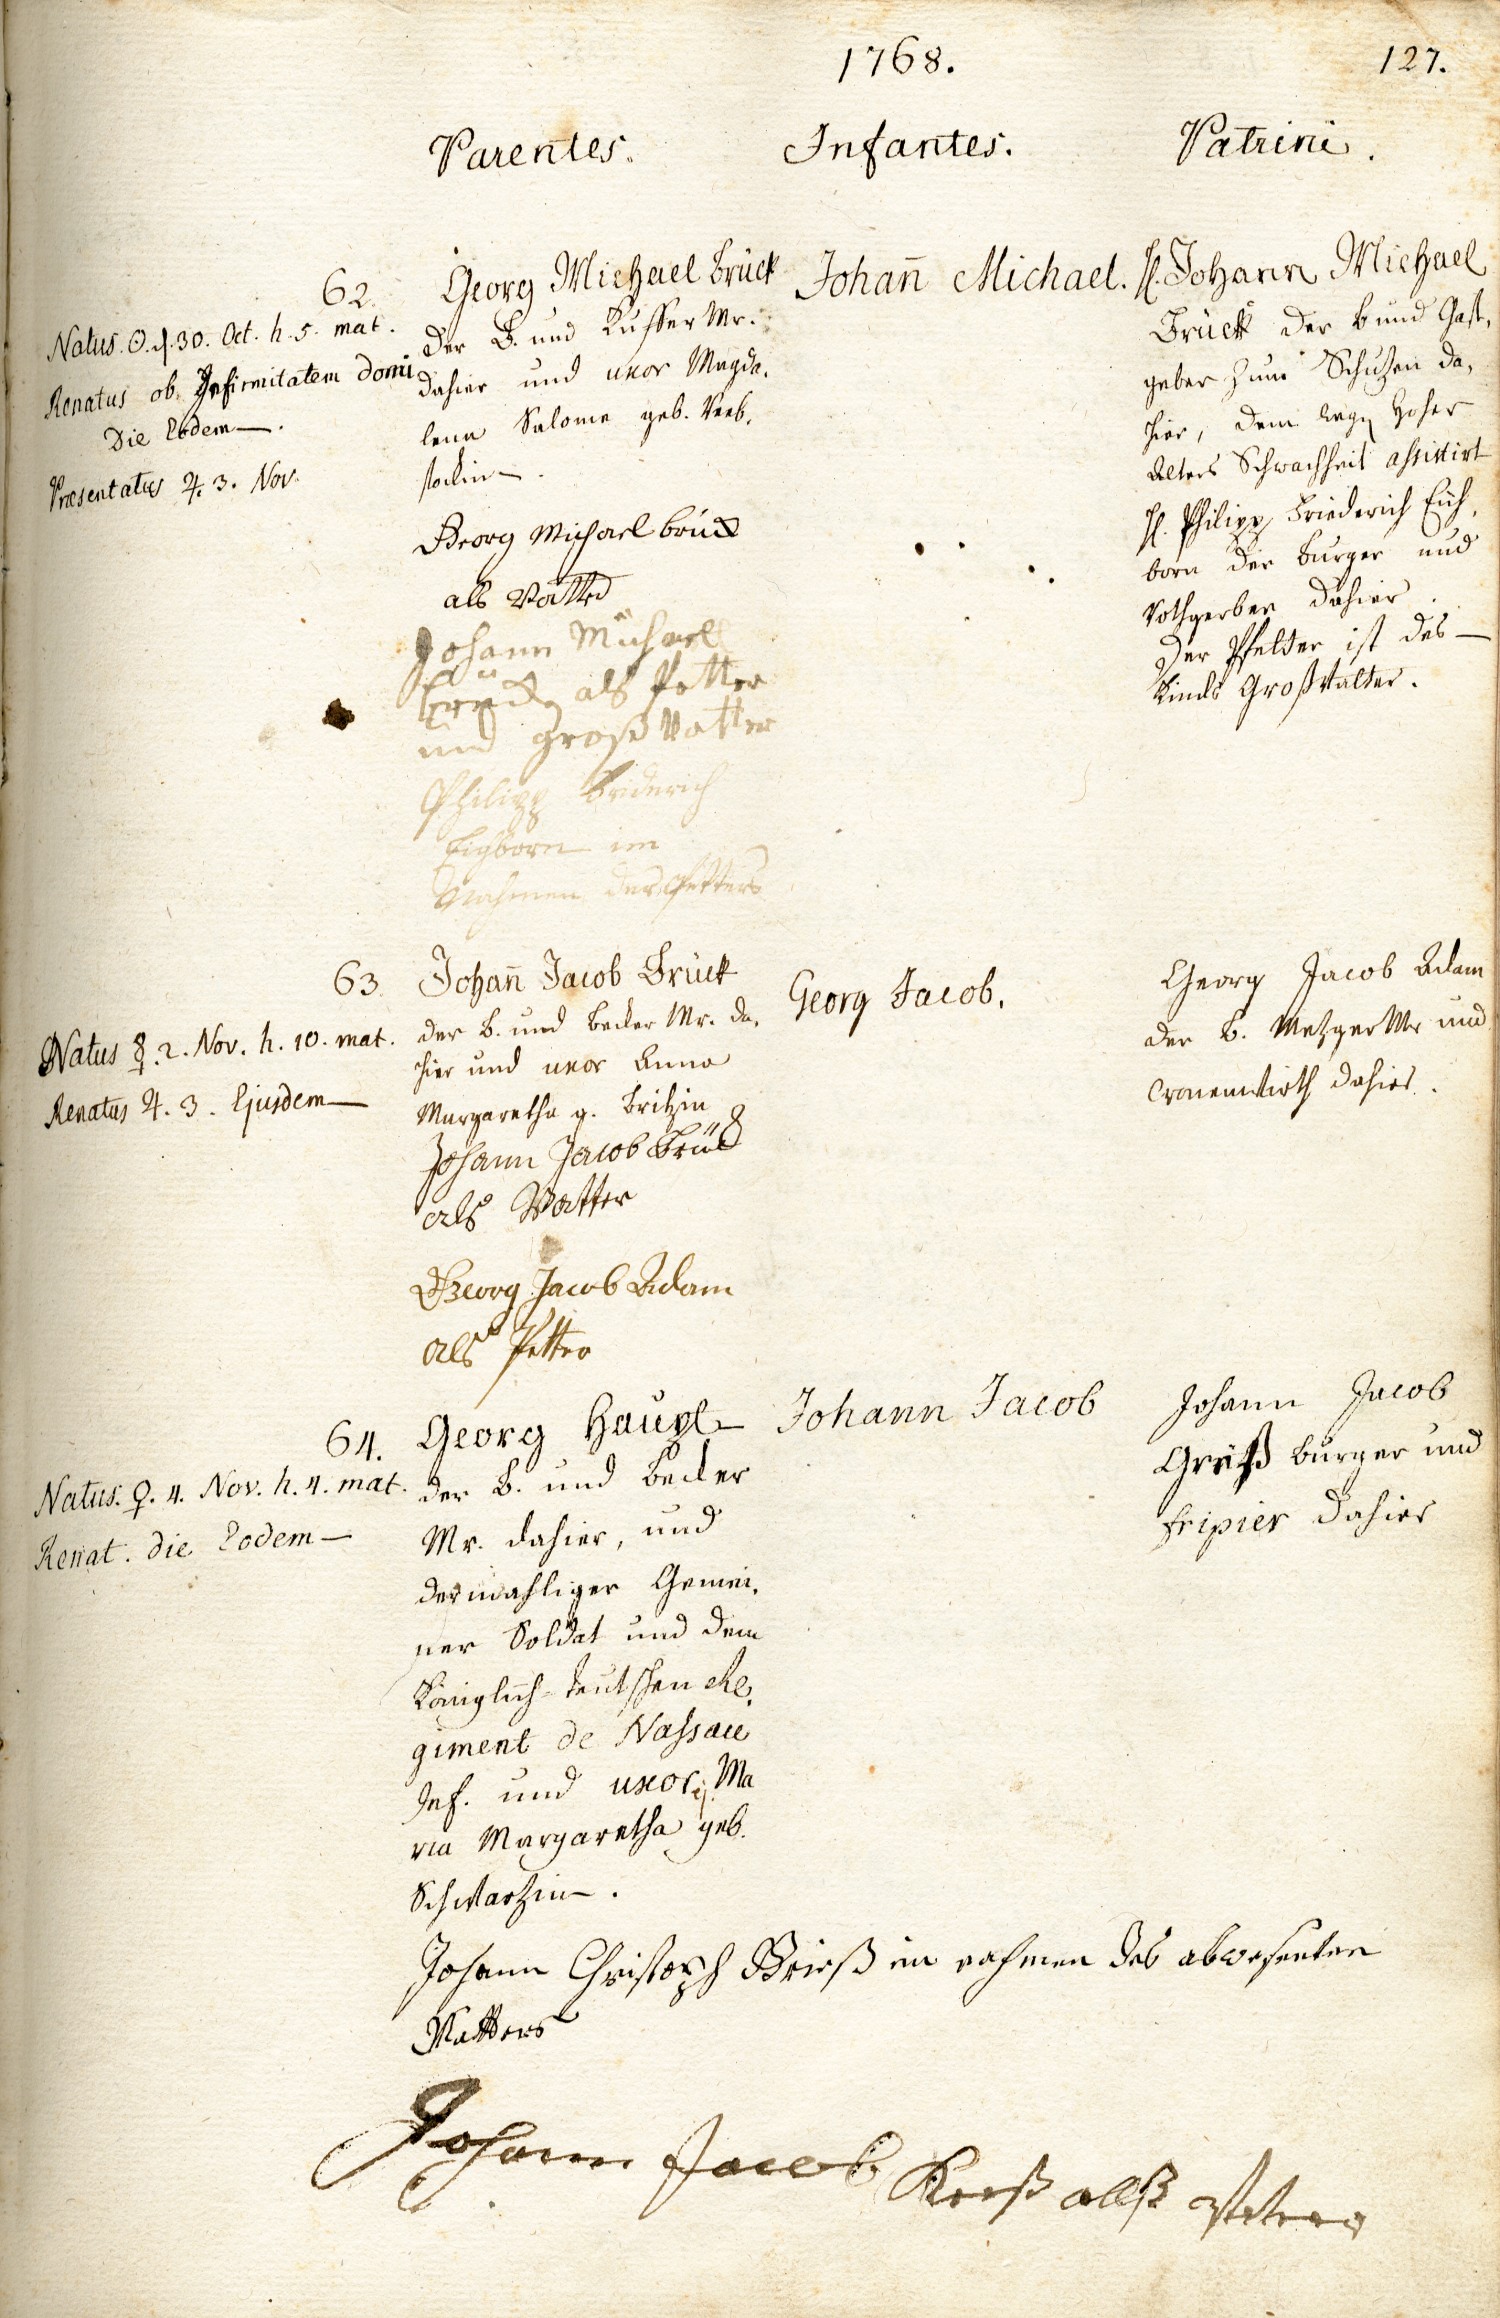 1768.
127.
Parentes.
Infantes.
Patrini.
62.
Natus. ☉. d. 30. Oct. h. 5. mat.
Renatus ob Infirmitatem domi
Die Eodem—.
Præsentatus ♃. 3. Nov.
Georg Michael Brück
der B. und Kuffer Mr.
dahier und uxor Magda,
lena Salome geb. Reb,
stockin—.
Georg Michael brück
als Vatter
Johann Michael
brück als Petter
und groß Vatter
Philipp Friderich
Eichborn im
Nahmen des Petters
Johañ Michael.
H. Johann Michael
Brück der b und Gast,
geber zum Schützen da,
hier, dem wegen Hohes
Alters Schwachheit assistirt
H. Philipp Friederich Eich,
born der burger und
Rothgerber dahier.
Der Pfetter ist des—
Kinds Großvatter.
63.
Natus ☿. 2. Nov. h. 10. mat.
Renatus ♃. 3. Ejusdem—
Johañ Jacob Brück
der B. und becker Mr. da,
hier und uxor Anna
Margaretha g. Britzin
Johann Jacob Brück
als Vatter
Georg Jacob Adam
als Petter
Georg Jacob.
Georg Jacob Adam
der B. Metzger Mr und
Cronenwirth dahier.
64.
Natus. ♀. 4. Nov. h. 4. mat.
Renat. die Eodem—
Georg Haupt
der B. und becker
Mr. dahier, und
dermahliger Gemei,
ner Soldat und dem
Königlich-Teutschen Re,
giment de Nassau
Inf. und uxor Ma
ria Margaretha geb.
Schwartzin—.
Johann Jacob
Johann Jacob
Grüß burger und
fripier dahier
Johann Christoph Grieß im nahmen des abwesenten
Vatters
Johann Jacob Kreß alß